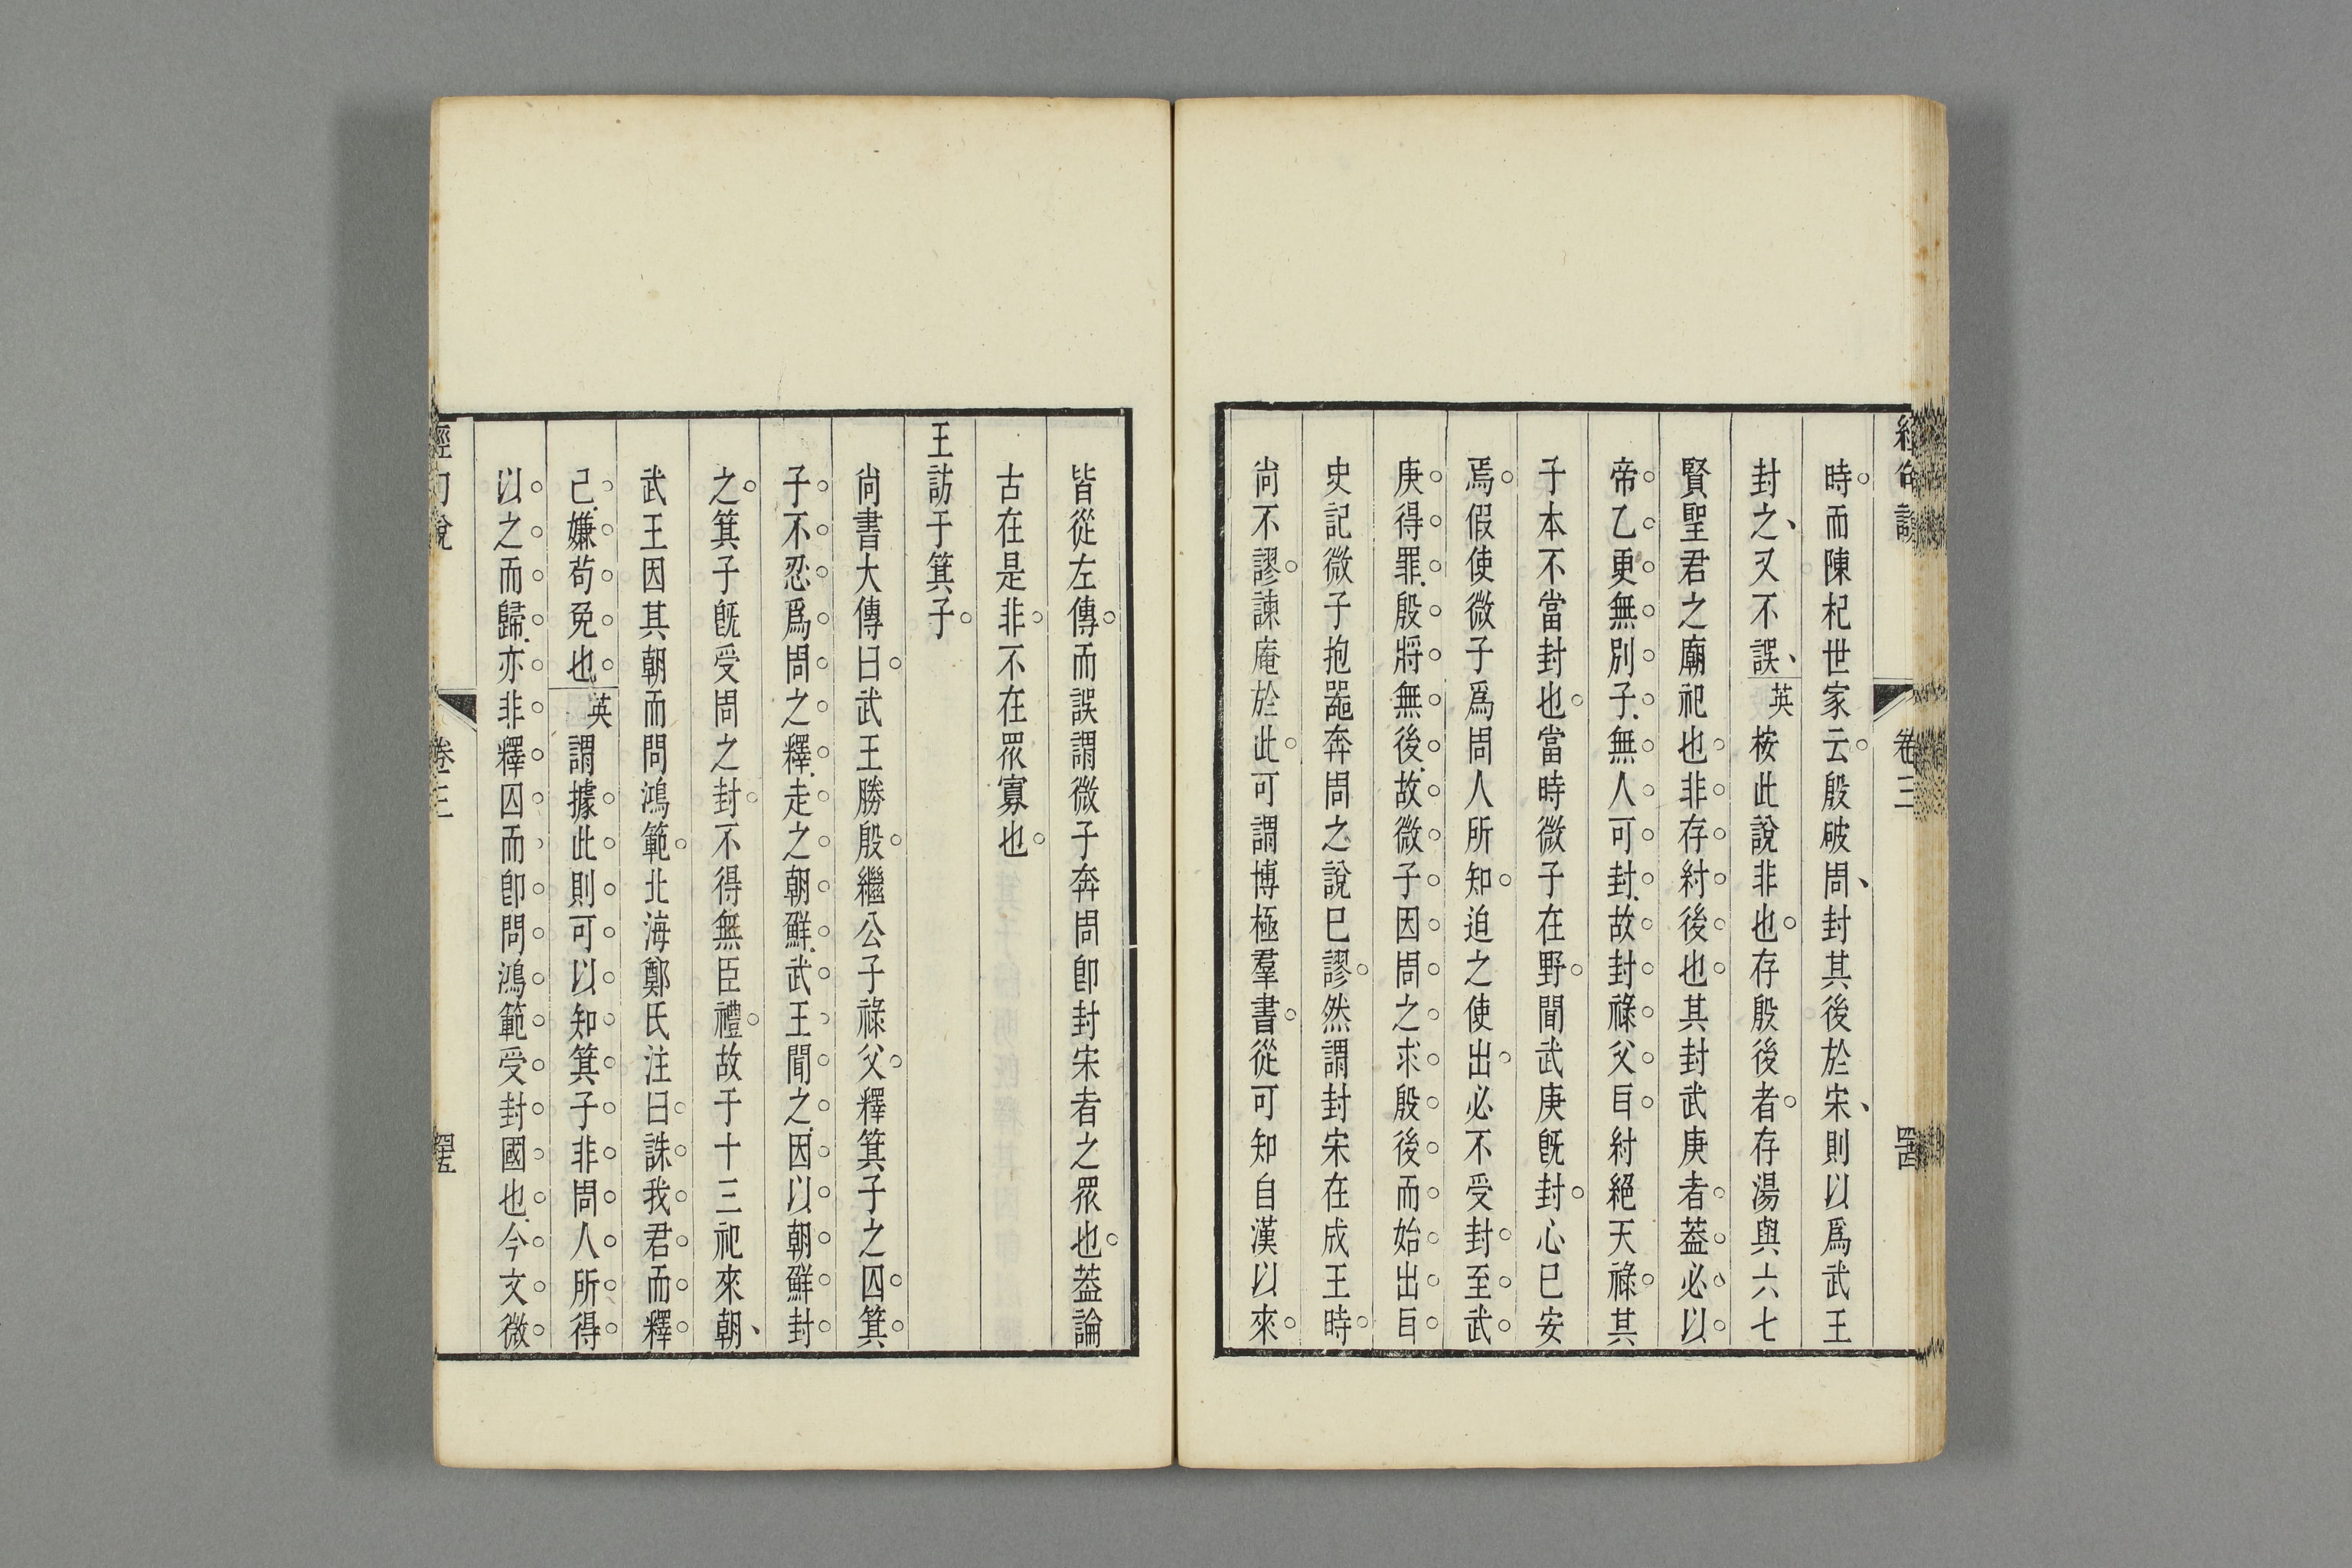 時而陳杞世家云殷破周封其後於宋則以爲武王
封之又不誤英桉此說非也存殷後者存湯與六七
賢聖君之廟祀也非存紂後也其封武庚者葢必以
帝乙更無別子無人可封故封祿父㠯紂絕天祿其
子本不當封也當時微子在野閒武庚旣封心已安
焉假使微子爲周人所知迫之使出必不受封至武
庚得罪殷將無後故微子因周之求殷後而始出㠯
史記微子抱噐奔周之說已謬然謂封宋在成王時
尙不謬諫庵於此可謂博極羣書從可知自漢以來
卷三
皆從左傳而誤謂微子奔周卽封宋者之眾也葢論
古在是非不在眾寡也
王訪于箕子
尙書大傳曰武王勝殷繼公子祿父釋箕子之囚箕
子不忍爲周之釋走之朝鮮武王聞之因以朝鮮封
之箕子旣受周之封不得無臣禮故于十三祀來朝
武王因其朝而問鴻範北海鄭氏注曰誅我君而釋
己嫌苟免也英謂據此則可以知箕子非周人所得
以之而歸亦非釋囚而卽問鴻範受封國也今文微
經句說
卷三